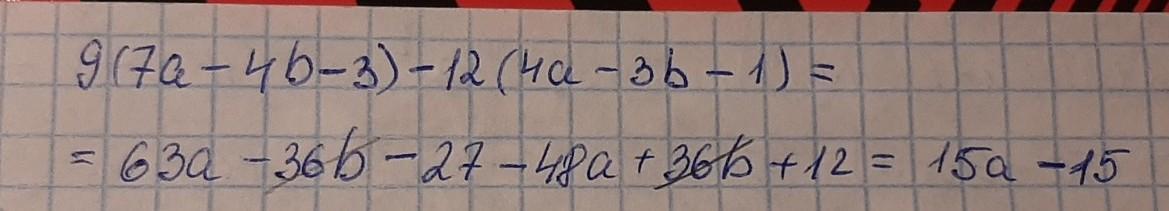 9(7a - 4b - 3) - 12(4a - 3b - 1) =
= 63a - 36b - 27 - 48a + 36b + 12 = 15a - 15